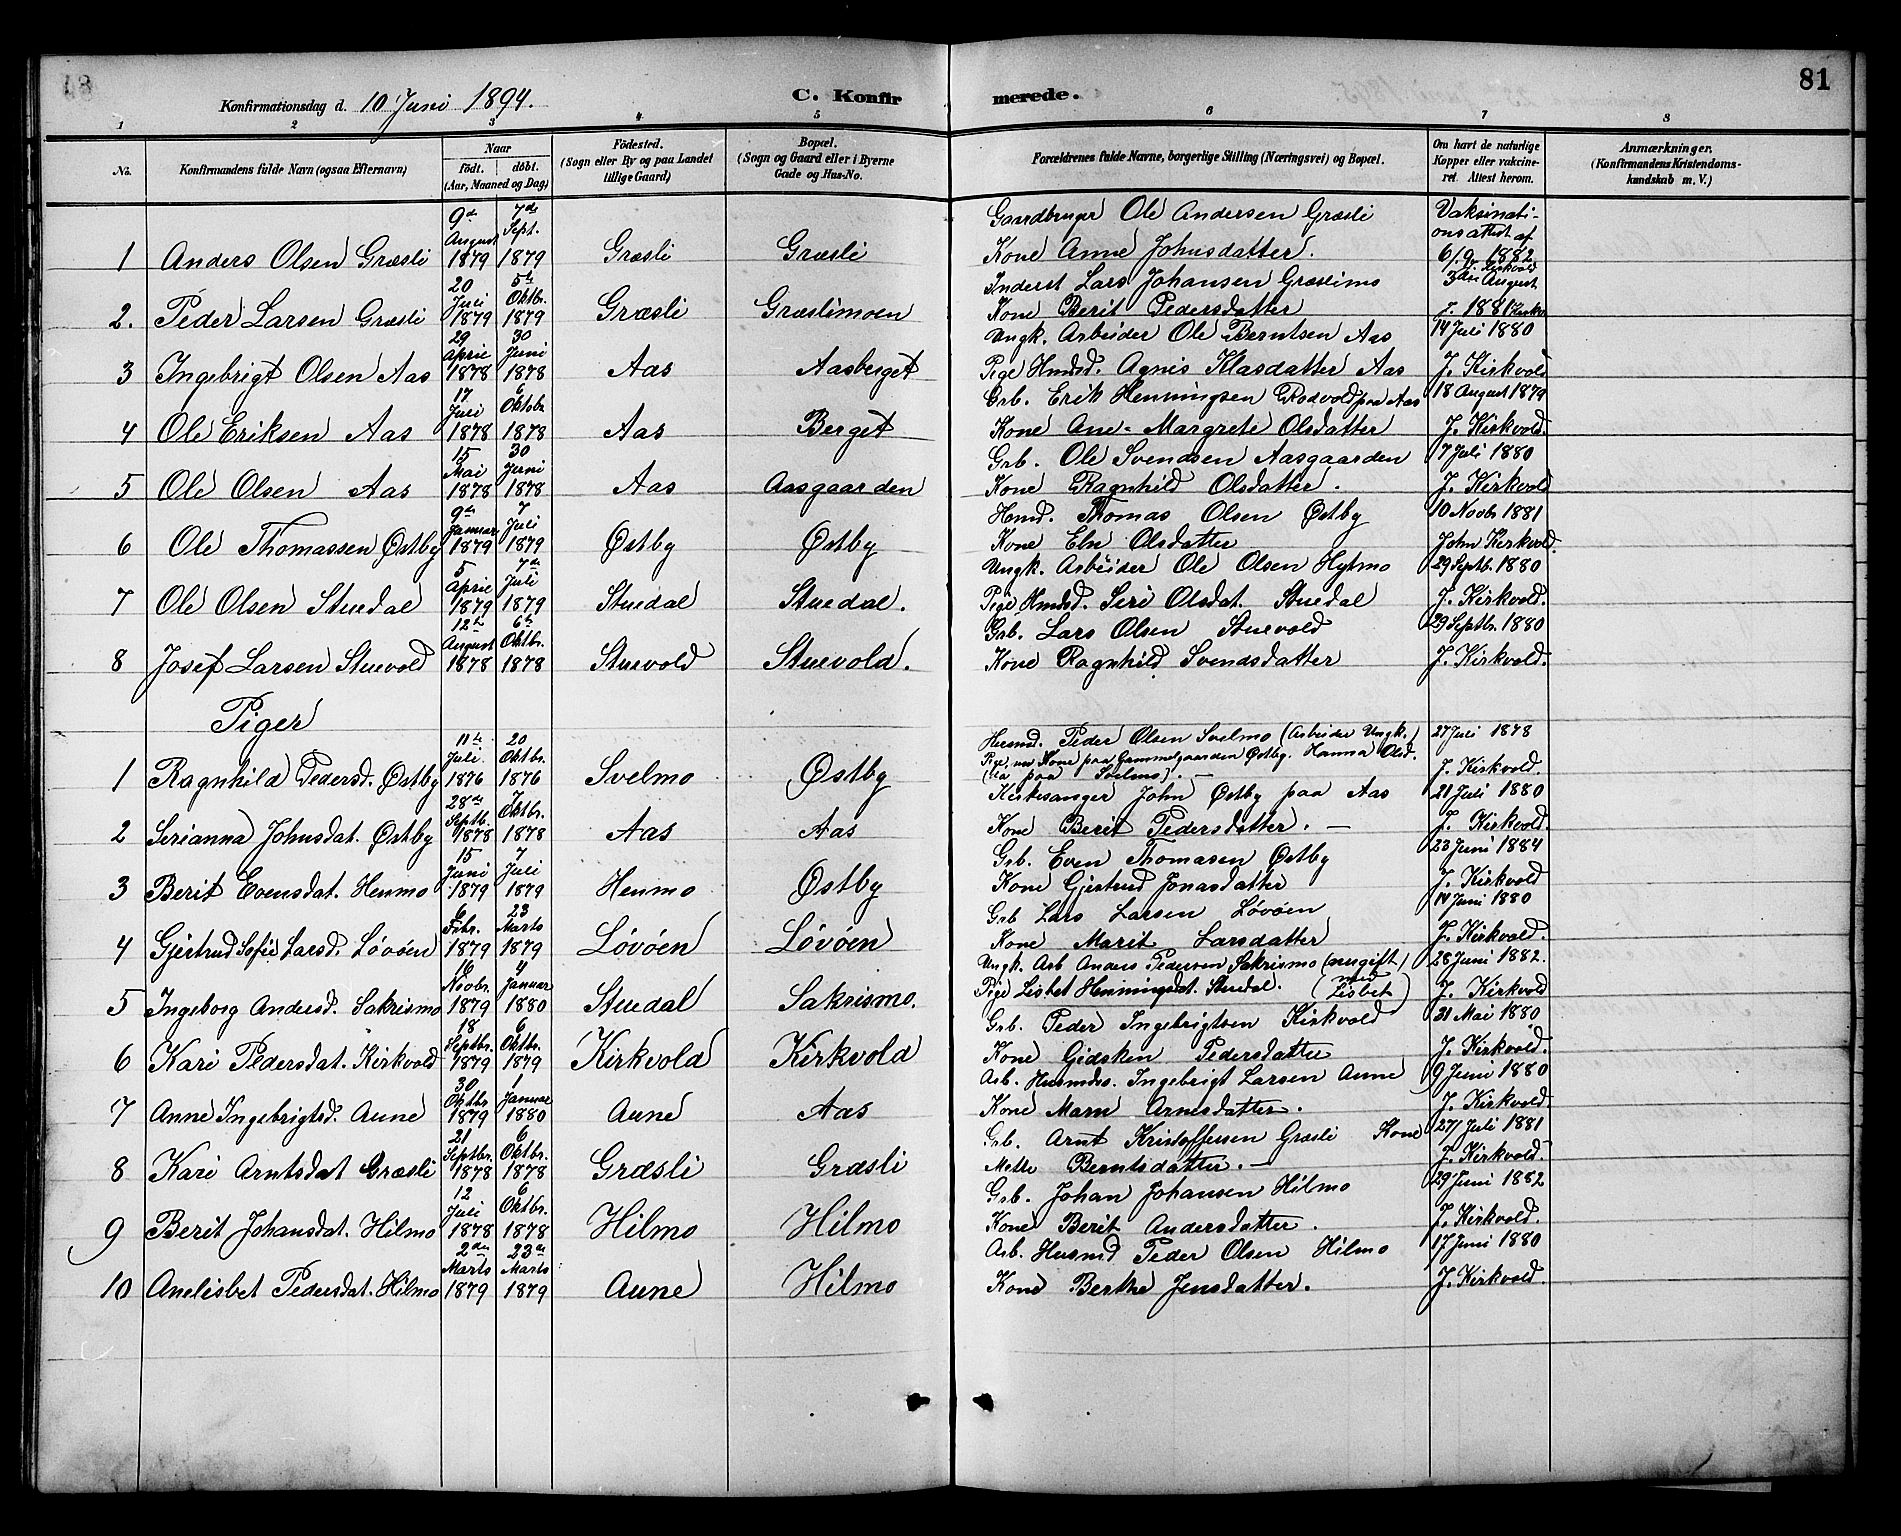 81
Konfirmationsdag d. 10 Juni 1894. C. Konfirmerede.
1 2 3 4 5 6 7 8
No. Konfirmandens fulde Navn (ogsaa Efternavn) Naar födt. döbt. (Aar, Maaned og Dag) Födested. (Sogn eller By og paa Landet tillige Gaard) Bopæl. (Sogn og Gaard eller i Byerne Gade og Hus-No. Forældrenes fulde Navne, borgerlige Stilling (Næringsvei) og Bopæl. Om havt de naturlige Kopper eller vakcineret. Attest herom. Anmærkninger. (Konfirmandens Kristendomskundskab m. V.)
1 Anders Olsen Græsli 9de August 1879 7de Sept. 1879 Græsli Græsli Gaardbruger Ole Andersen Græsli Kone Anne Johnsdatter. Vaksinationsattest af 6/9 1882 J. Kirkvold
2. Peder Larsen Græsli 20 Juli 1879 5te Oktbr. 1879 Græsli Græslimoen Inderst Lars Johansen Græslimo Kone Berit Pedersdatter 3die August 1881
3 Ingebrigt Olsen Aas 29 April 1878 30 Juni 1878 Aas Aasberget Ungk. Arbeider Ole Berntsen Aas Pige Hmdsd. Agnis Klasdatter Aas 14 Juli 1880 J. Kirkvold
4 Ole Eriksen Aas 17 Juli 1878 6 Oktobr 1878 Aas Berget Grb. Erik Henningsen Rodvold paa Aas Kone Ane-Margrete Olsdatter 18 August 1879 J. Kirkvold.
5 Ole Olsen Aas 15 Mai 1878 30 Juni 1878 Aas Aasgaarden Grb. Ole Svendsen Aasgaarden Kone Ragnhild Olsdatter. 7 Juli 1880 J. Kirkvold
6 Ole Thomassen Østby 9de Januar 1879 7 Juli 1879 Østby Østby Hmd. Thomas Olsen Østby Kone Eln Olsdatter 10 Novbr 1881 John Kirkvold.
7 Ole Olsen Stuedal 5 April 1879 7de Juli 1879 Stuedal Stuedal. Ungk. Arbeider Ole Olsen Hytmo Pige Hmdsd. Seri Olsdat. Stuedal 29 Septb. 1880 J. Kirkvold.
8 Josef Larsen Stuevold 12te August 1878 6te Oktbr. 1878 Stuevold Stuevold. Grb. Lars Olsen Stuevold Kone Ragnhild Svendsdatter 29 Septbr. 1880 J. Kirkvold.
Piger
1 Ragnhild Pedersd. Østby 11te Juli 1876 20 Oktbr. 1876 Svelmo Østby Husmd. Peder Olsen Svelmo (Arbeider Ungk.) Pige, nu Kone paa Gammelgaarden Østby. Hanna Olsd. paa Svelmo). 27 Juli 1878 J. Kirkvold.
2 Serianna Johnsdat. Østby 28de Septb. 1878 7 Oktbr. 1878 Aas Aas Kirkesanger John Østby paa Aas Kone Berit Pedersdatter. 21 Juli 1880 J. Kirkvold.
3 Berit Evensdat. Henmo 15 Juni 1879 7 Juli 1879 Henmo Østby Grb. Even Thomasen Østby Kone Gjertrud Jonasdatter 23 Juni 1884 J. Kirkvold
4 Gjertrud Sofie Larsd. Løvöen 6 Febr. 1879 23 Marts 1879 Løvöen Løvöen Grb Lars Larsen Løvöen Kone Marit Larsdatter 14 Juni 1880 J. Kirkvold.
5 Ingeborg Andersd. Sakrismo 16 Novbr. 1879 4 Januar 1880 Stuedal Sakrismo. Ungk. Arb Anders Pedersen Sakrismo (nu gift med Lisbet) Pige Lisbet Henningsdat. Stuedal. 28 Juni 1882. J. Kirkvold
6 Kari Pedersdat. Kirkvold 18 Septbr. 1879 6 Oktbr. 1879 Kirkvold Kirkvold Grb. Peder Ingebrigtsen Kirkvold Kone Gidsken Pedersdatter 31 Mai 1880 J. Kirkvold.
7 Anne Ingebrigtsd. Aune 30 Oktbr 1879 1 Januar 1880 Aune Aas Arb. Husmds. Ingebrigt Larsen Aune Kone Marn Arnesdatter. 9 Juni 1880 J. Kirkvold.
8 Kari Arntsdat Græsli 21 Septbr. 1878 6 Oktbr. 1878 Græsli Græsli Grb. Arnt Kristoffersen Græsli Kone Mette Berntsdatter. 27 Juli 1881 J. Kirkvold.
9 Berit Johansdat. Hilmo 12 Juli 1878 6 Oktbr. 1878 Hilmo Hilmo Grb. Johan Johansen Hilmo Kone Berit Andersdatter. 29 Juni 1882 J. Kirkvold.
10 Anelisbet Pedersdat. Hilmo 2den Marts 1879 23de Marts 1879 Aune Hilmo Arb. Husmd Peder Olsen Hilmo Kone Berthe Jensdatter. 17 Juni 1880 J. Kirkvold.